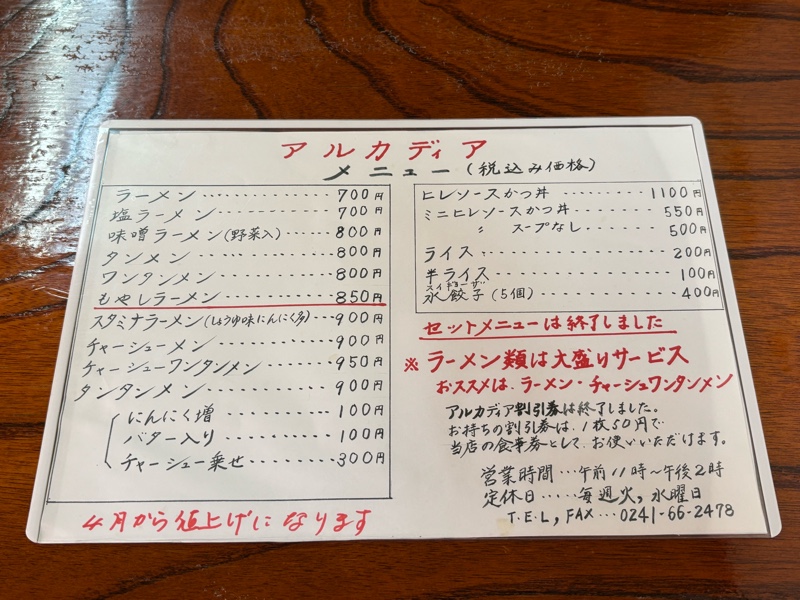 アルカディア
メニュー(税込み価格)
ラーメン 700円
塩ラーメン 700円
味噌ラーメン(野菜入) 800円
タンメン 800円
ワンタンメン 800円
もやしラーメン 850円
スタミナラーメン(しょうゆ味にんにく多) 900円
チャーシューメン 900円
チャーシューワンタンメン 950円
タンタンメン 900円
にんにく増 100円
バター入り 100円
チャーシュー乗せ 300円
4月から値上げになります
ヒレソースかつ丼 1100円
ミニヒレソースかつ丼 550円
〃 スープなし 500円
ライス 200円
半ライス 100円
スイギョーザ
水餃子(5個) 400円
セットメニューは終了しました
※ラーメン類は大盛りサービス
おススメは、ラーメン・チャーシュワンタンメン
アルカディア割引券は終了しました。
お持ちの割引券は、1枚50円で
当店の食事券として、お使いいただけます。
営業時間…午前11時~午後2時
定休日……毎週火,水曜日
T.E.L, FAX…0241-66-2478